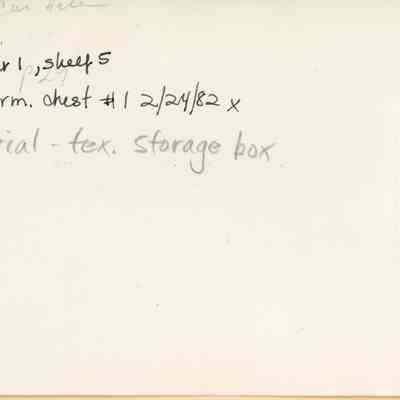 r 1, shelf 5
rm. chest #1 2/24/82 x
rial - tex. storage box